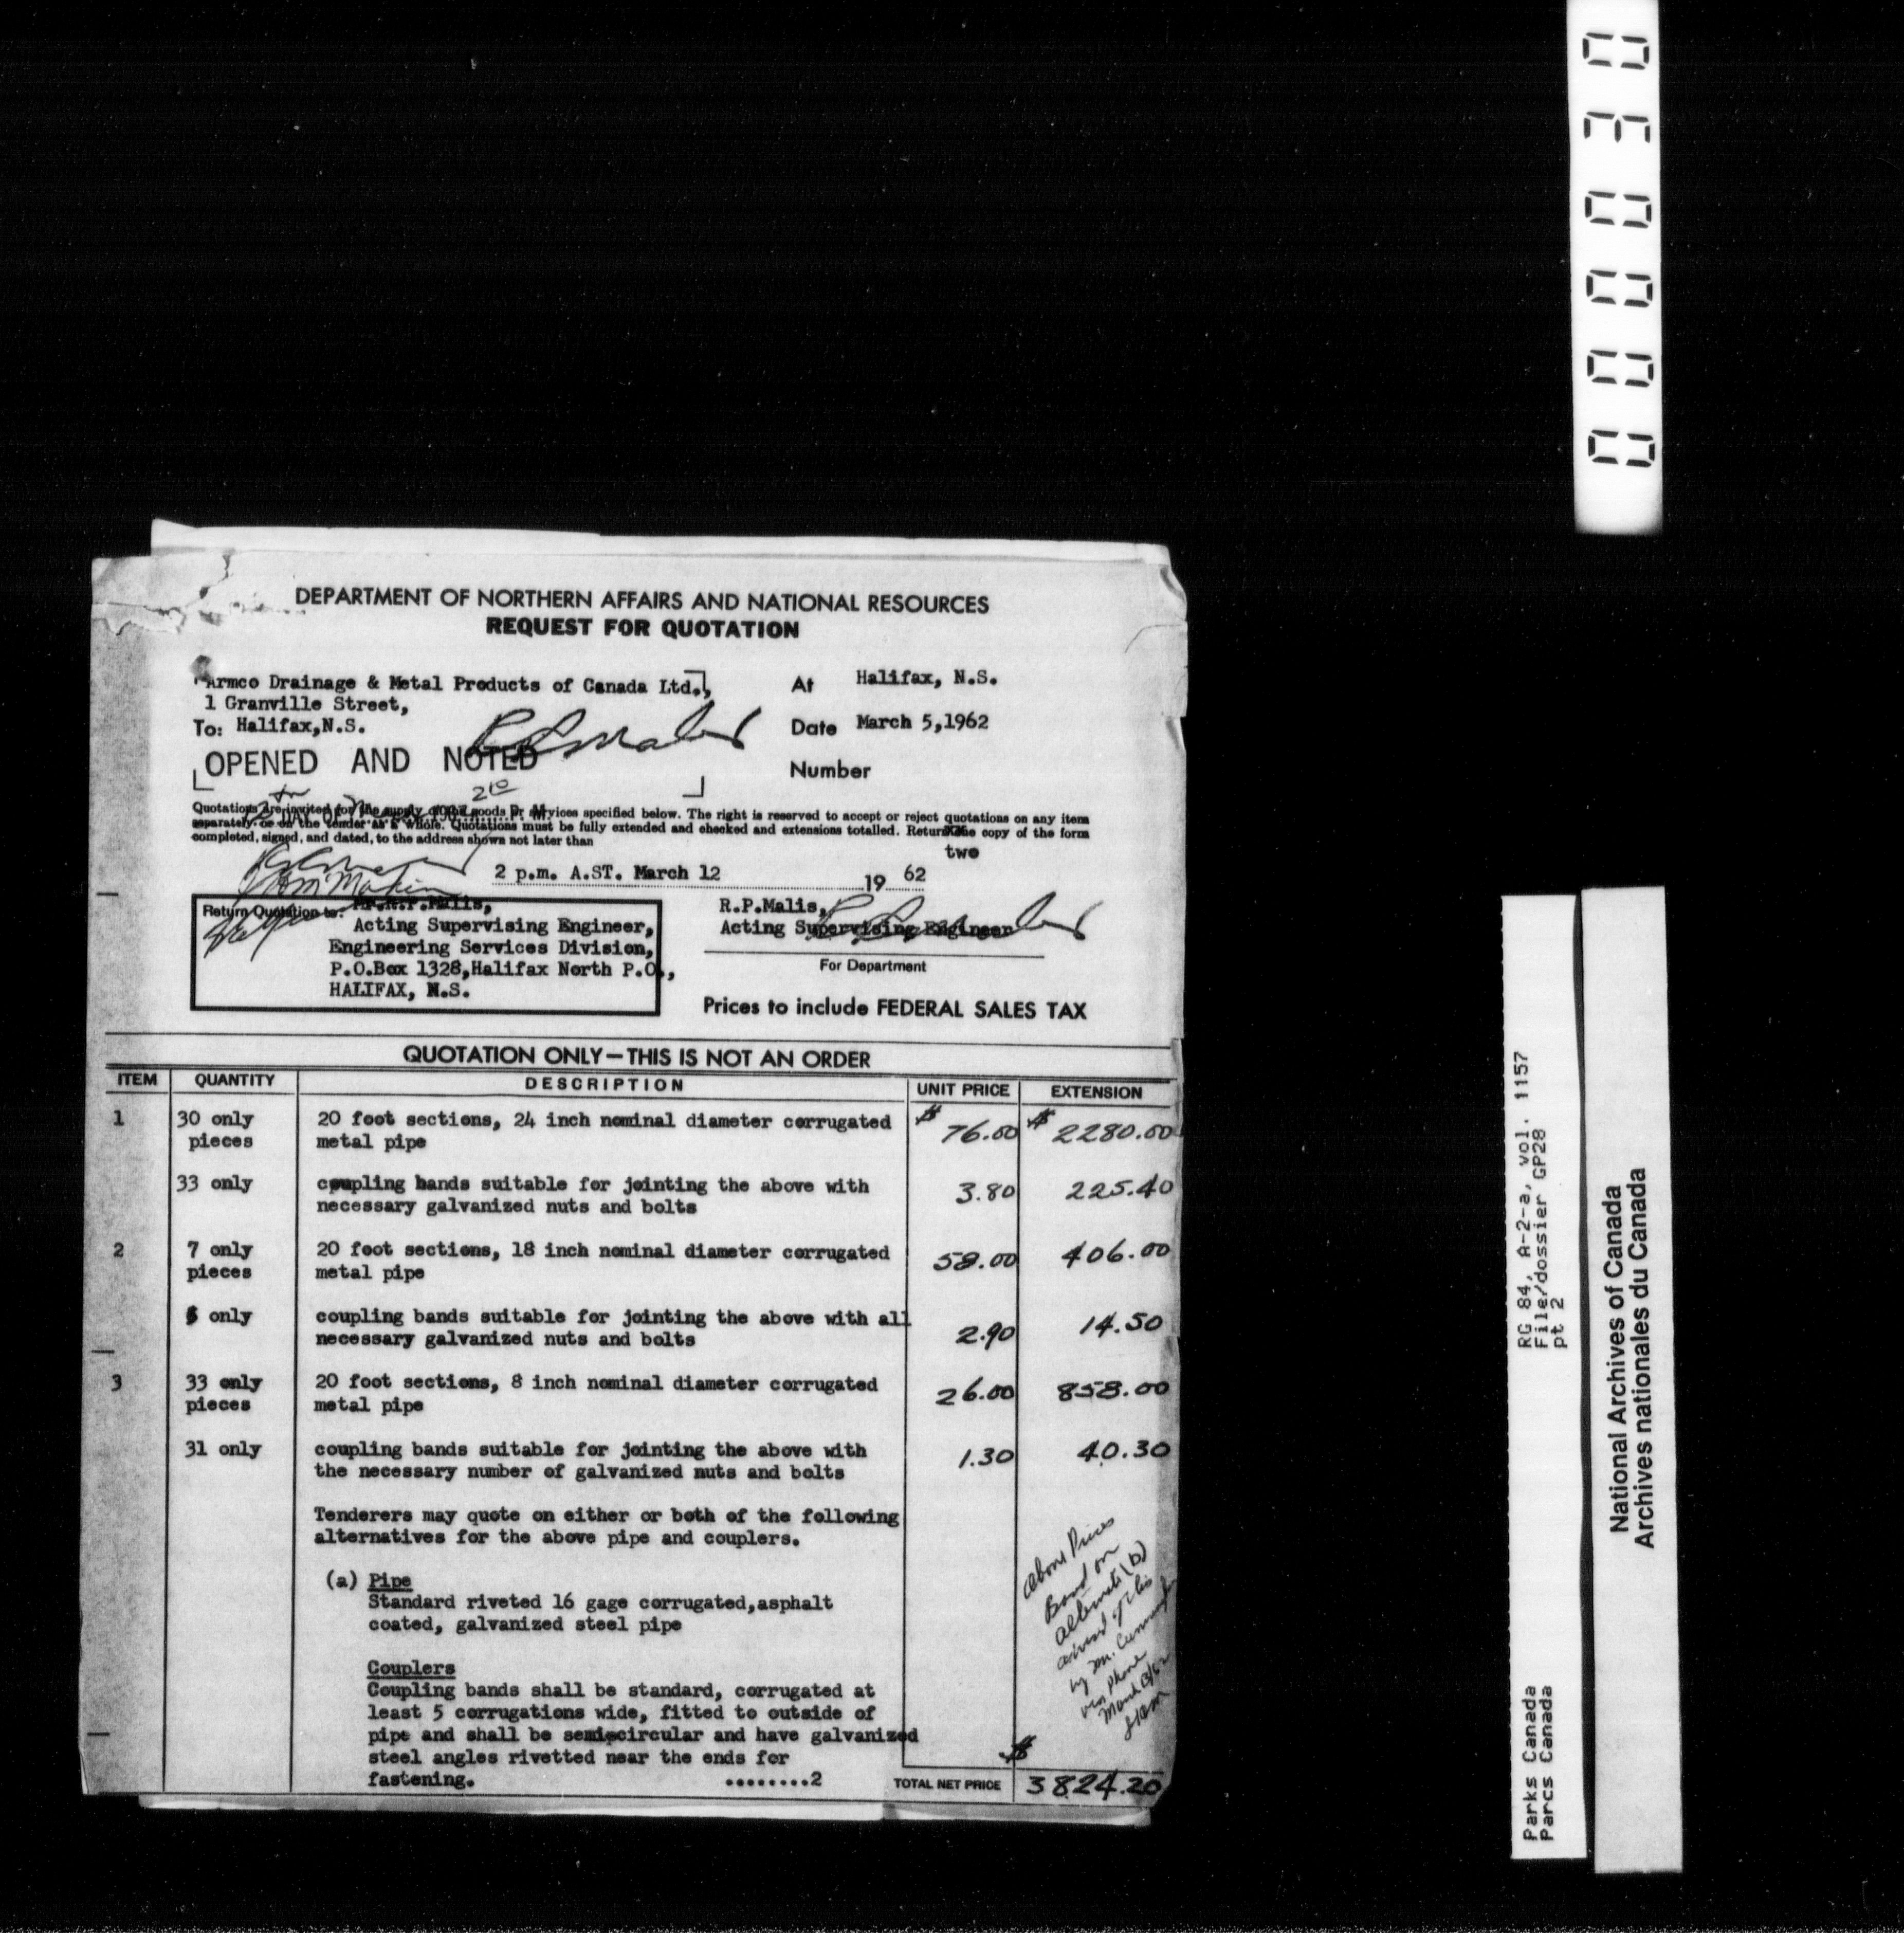 DEPARTMENT OF NORTHERN AFFAIRS AND NATIONAL RESOURCES
REQUEST FOR QUOTATION
Armco Drainage & Metal Products of Canada Ltd.,
1 Granville Street,
To: Halifax,N.S.
At Halifax, N.S.
Date March 5,1962
Number
OPENED AND NOTED
DAY OF 196 P. M.
Quotations are invited for the supply of the goods or services specified below. The right is reserved to accept or reject quotations on any item
separately or on the tender as a whole. Quotations must be fully extended and checked and extensions totalled. Return one copy of the form
two
completed, signed, and dated, to the address shown not later than
2 p.m. A.ST. March 12 19 62
Return Quotation to: Mr.R.P.Malis,
Acting Supervising Engineer,
Engineering Services Division,
P.O.Box 1328,Halifax North P.O.,
HALIFAX, N.S.
R.P.Malis,
Acting Supervising Engineer
For Department
Prices to include FEDERAL SALES TAX
QUOTATION ONLY—THIS IS NOT AN ORDER
ITEM QUANTITY DESCRIPTION UNIT PRICE EXTENSION
1 30 only 20 foot sections, 24 inch nominal diameter corrugated $ 76.00 $ 2280.00
pieces metal pipe
33 only coupling bands suitable for jointing the above with 3.80 225.40
necessary galvanized nuts and bolts
2 7 only 20 foot sections, 18 inch nominal diameter corrugated 58.00 406.00
pieces metal pipe
5 only coupling bands suitable for jointing the above with all 2.90 14.50
necessary galvanized nuts and bolts
3 33 only 20 foot sections, 8 inch nominal diameter corrugated 26.00 858.00
pieces metal pipe
31 only coupling bands suitable for jointing the above with 1.30 40.30
the necessary number of galvanized nuts and bolts
Tenderers may quote on either or both of the following
alternatives for the above pipe and couplers.
(a) Pipe
Standard riveted 16 gage corrugated,asphalt
coated, galvanized steel pipe
Couplers
Coupling bands shall be standard, corrugated at
least 5 corrugations wide, fitted to outside of
pipe and shall be semi-circular and have galvanized
steel angles rivetted near the ends for
fastening. ........2
above Prices
Based on
alternate (b)
advised of this
by Mr.
via phone
March 13/62
$
TOTAL NET PRICE 3824.20
000030
RG 84, A-2-a, vol. 1157
File/dossier GP28
pt 2
Parks Canada
Parcs Canada
National Archives of Canada
Archives nationales du Canada